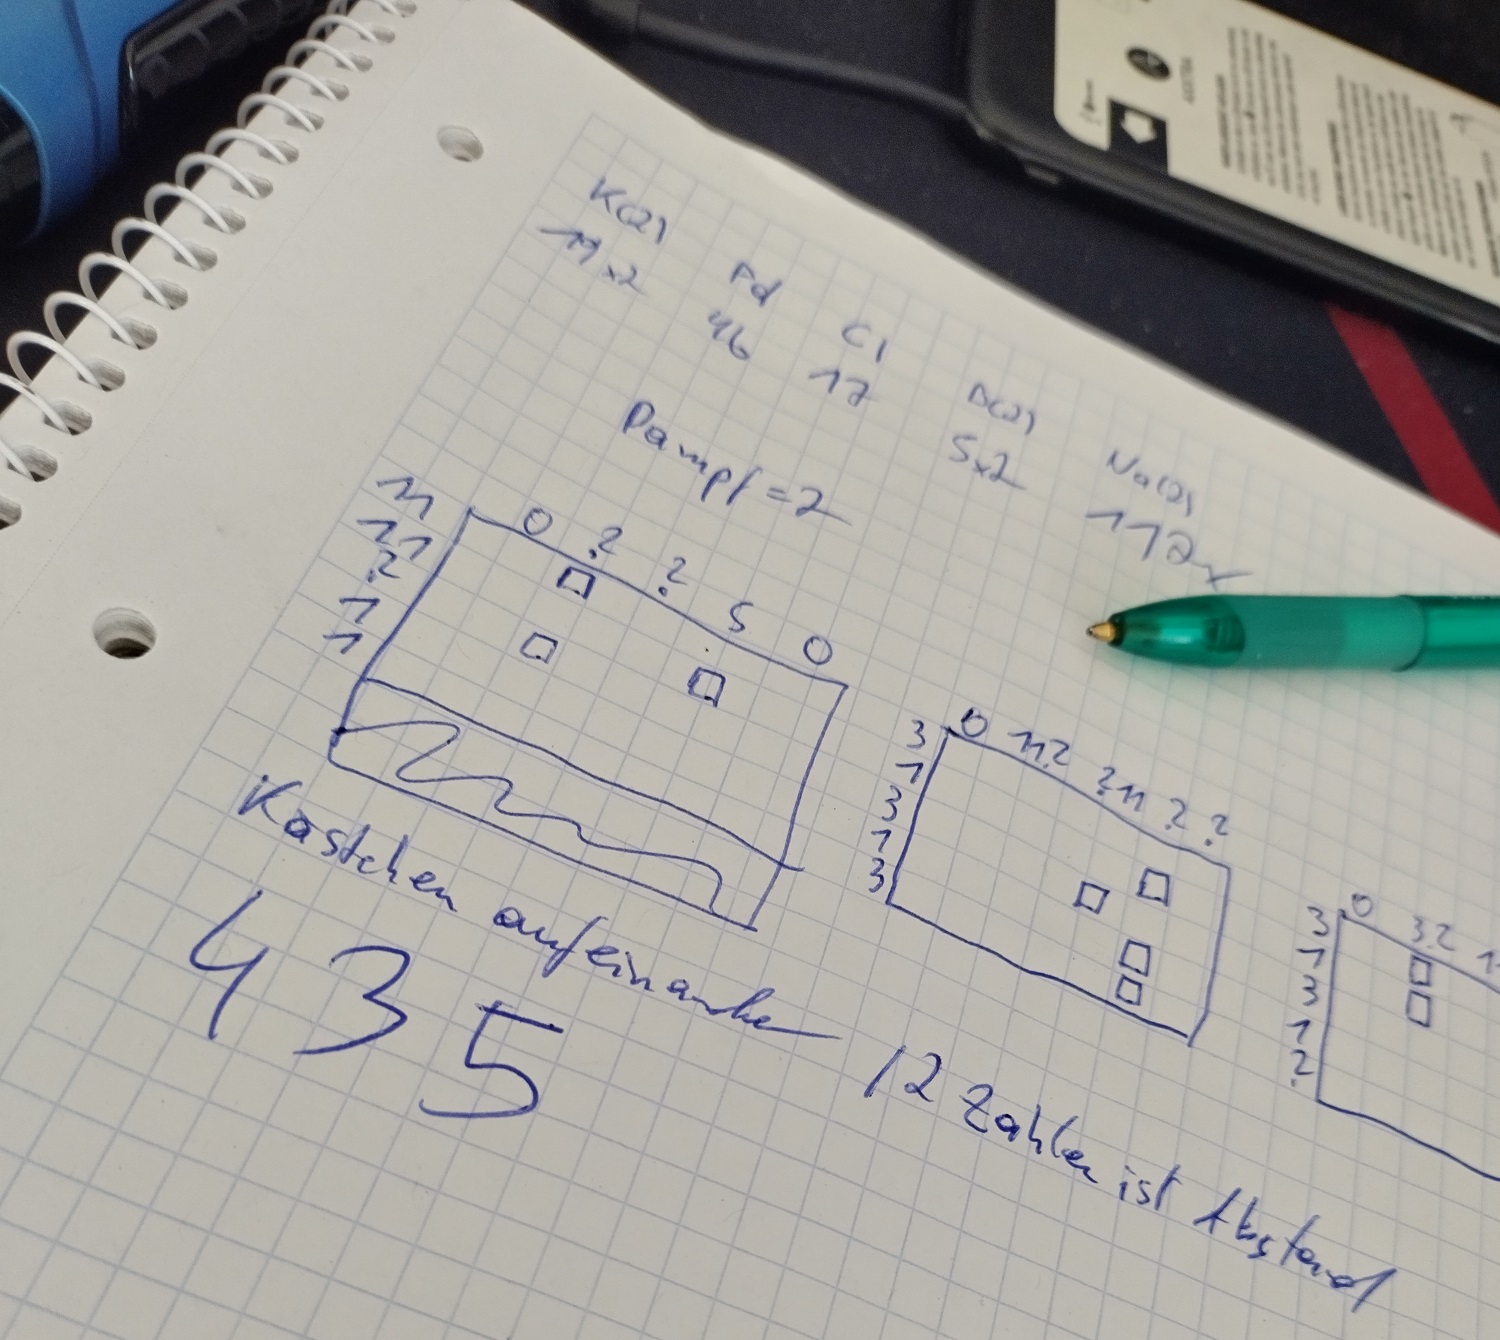 K(2) Pd Cl B(2) Na(2)
19x2 46 17 5x2 11 2x
Dampf = 2
0 ? ? 5 0
11
11
?
1
1
0 11? ?11 ? ?
3
1
3
1
3
0 32 1
3
1
3
1
?
Kästchen aufeinander / 2 Zahlen ist Abstand
435